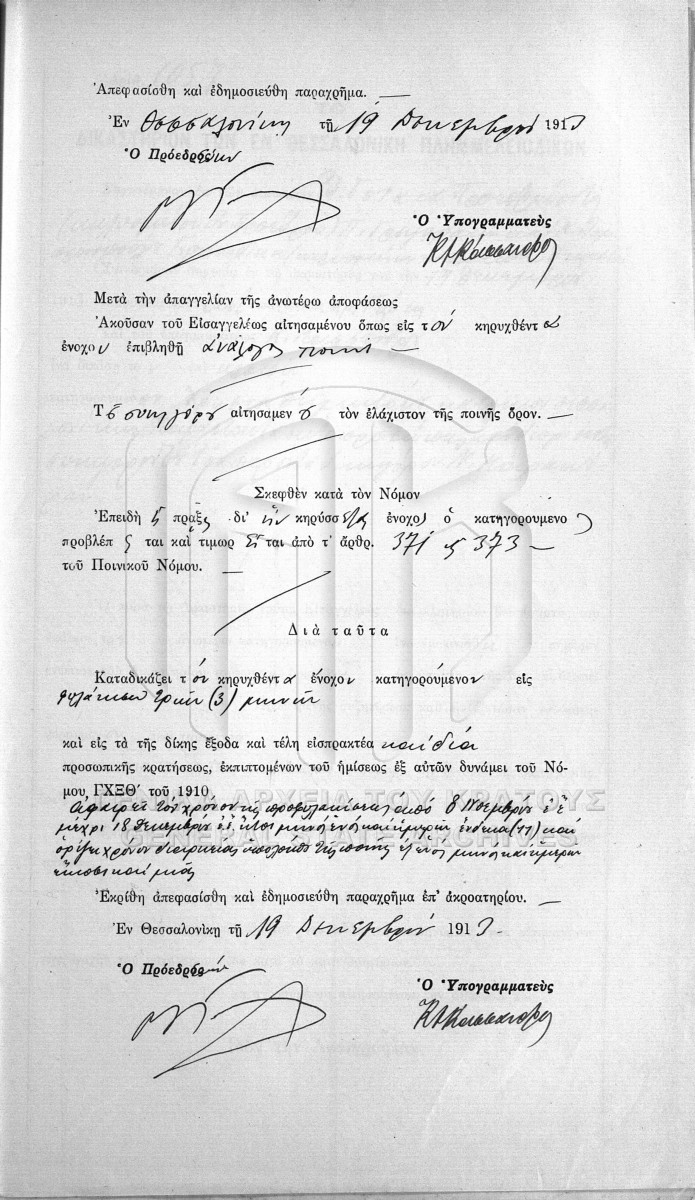 Ἀπεφασίσθη καὶ ἐδημοσιεύθη παραχρῆμα. —
Ἐν Θεσσαλονίκῃ τῇ 19 Δεκεμβρίου 1913
Ὁ Προεδρεύων
Ὁ Ὑπογραμματεὺς
Μετὰ τὴν ἀπαγγελίαν τῆς ἀνωτέρω ἀποφάσεως
Ἀκοῦσαν τοῦ Εἰσαγγελέως αἰτησαμένου ὅπως εἰς τὸν κηρυχθέντα
ἔνοχον ἐπιβληθῇ ἀνάλογος ποινὴ —
Τοῦ συνηγόρου αἰτησαμένου τὸν ἐλάχιστον τῆς ποινῆς ὅρον. —
Σκεφθὲν κατὰ τὸν Νόμον
Ἐπειδὴ ἡ πρᾶξις δι' ἣν κηρύσσεται ἔνοχος ὁ κατηγορούμενος
προβλέπεται καὶ τιμωρεῖται ἀπὸ τ' ἄρθρ. 371 ϗ 373 —
τοῦ Ποινικοῦ Νόμου. —
Διὰ ταῦτα
Καταδικάζει τὸν κηρυχθέντα ἔνοχον κατηγορούμενον εἰς
φυλάκισιν τριῶν (3) μηνῶν
καὶ εἰς τὰ τῆς δίκης ἔξοδα καὶ τέλη εἰσπρακτέα καὶ διὰ
προσωπικῆς κρατήσεως, ἐκπιπτομένων τοῦ ἡμίσεως ἐξ αὐτῶν δυνάμει τοῦ Νό-
μου ΓΧΞΘ' τοῦ 1910
Ἀφαιρεῖ τὸν χρόνον τῆς προφυλακίσεως ἀπὸ 8 Νοεμβρίου ἐ.ἔ.
μέχρι 18 Δεκεμβρίου ἐ.ἔ. ἤτοι μῆνα ἕνα καὶ ἡμέρας ἕνδεκα (11) καὶ
ὁρίζει χρόνον διαρκείας ὑπολοίπου τῆς ποινῆς ἑνὸς μηνὸς καὶ ἡμερῶν
εἴκοσι καὶ μιᾶς
Ἐκρίθη ἀπεφασίσθη καὶ ἐδημοσιεύθη παραχρῆμα ἐπ' ἀκροατηρίου. —
Ἐν Θεσσαλονίκῃ τῇ 19 Δεκεμβρίου 1913.
Ὁ Προεδρεύων
Ὁ Ὑπογραμματεὺς
ΓΕΝΙΚΑ ΑΡΧΕΙΑ ΤΟΥ ΚΡΑΤΟΥΣ
GENERAL STATE ARCHIVES